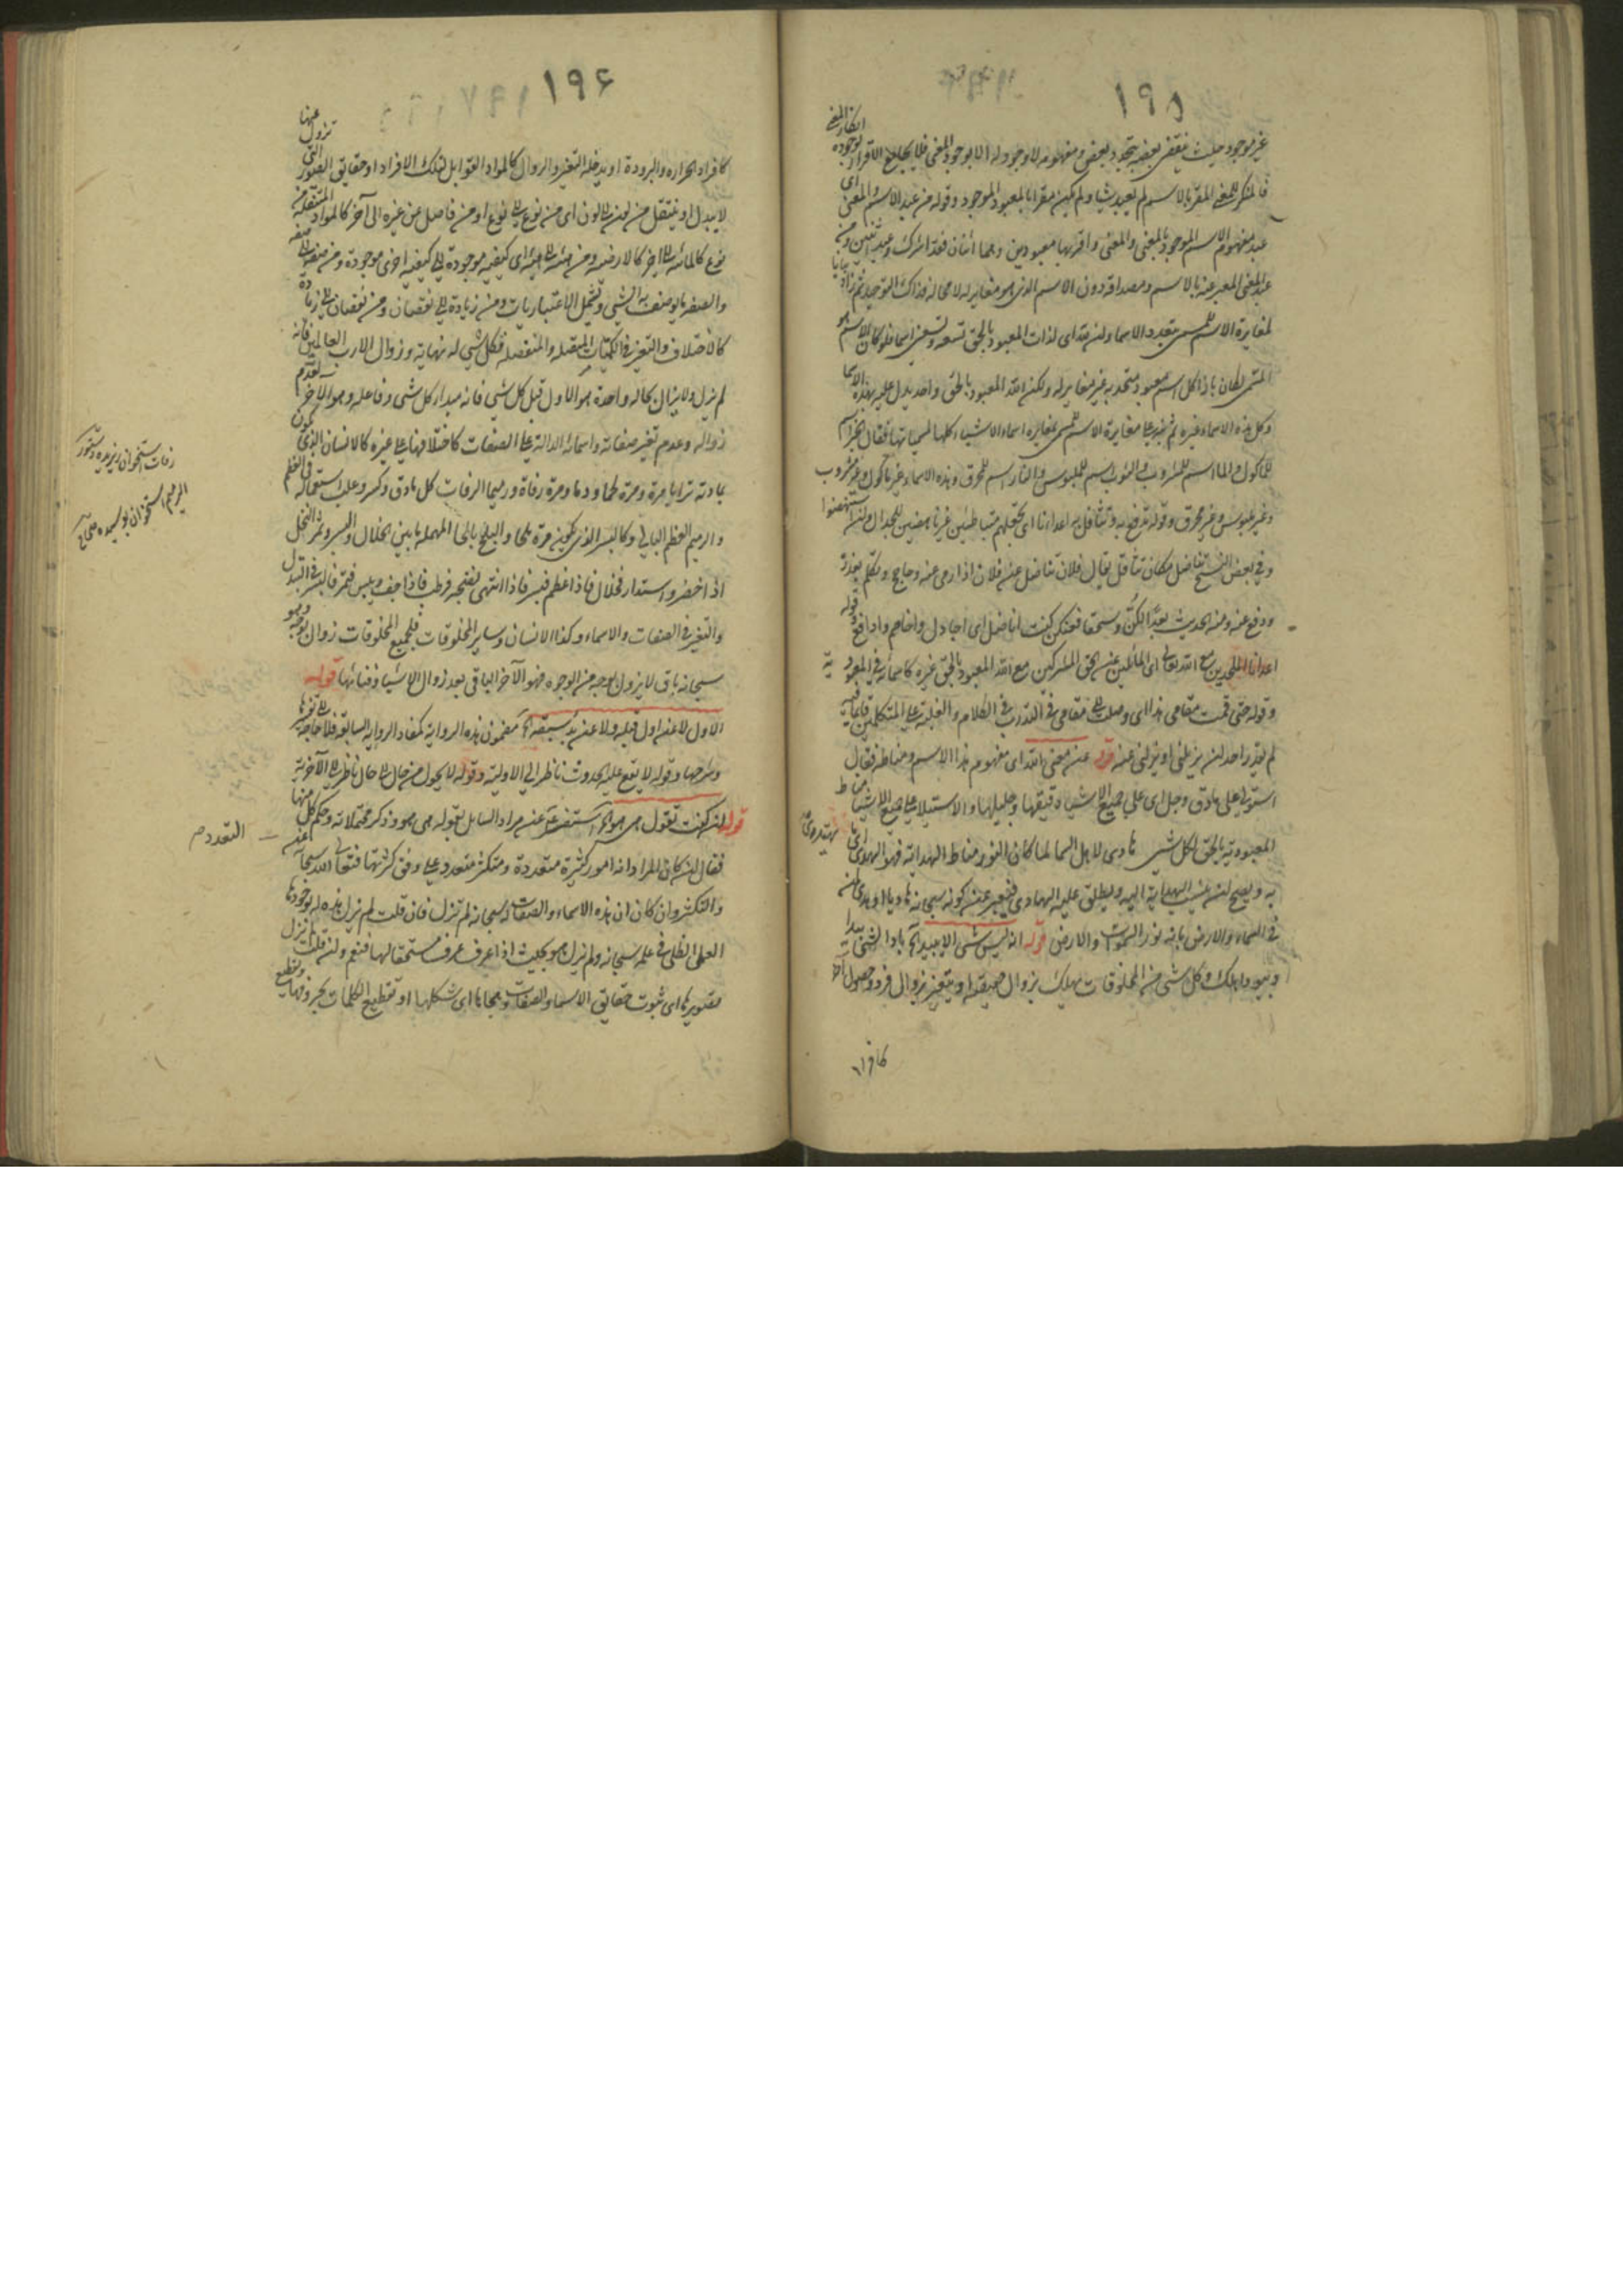 ١٩٥
غير موجود حيث ينقضى بعضه يتجدد بعض ومفهومه لا وجود له الا بوجود المعنى فلا يجامع الاقرار بوجوده انكار المعنى
فالمنكر للمعنى المقر بالاسم لم يعبد شيئا ولم يكن مقرا بالمعبود الموجود وقوله من عبد الاسم والمعنى اى
عبد مفهوم الاسم الموجود بالمعنى والمعنى واقر بهما معبودين وهما اثنان فقد اشرك وعبد اثنين ومن
عبد المعنى المعبر عنه بالاسم ومصداقه دون الاسم الذى هو مغاير له لا محالة فذاك التوحيد ثم زاد بيانا
لمغايرة الاسم للمسمى بتعدد الاسماء ولله اى لذات المعبود بالحق تسعة وتسعين اسما فلو كان الاسم هو
المسمى لكان باذا كل اسم معبود متحد به غير مغاير له ولكن الله المعبود بالحق واحد يدل عليه بهذه الاسما
وكل هذه الاسماء غيره ثم نبه على مغايرة الاسم للمسمى بمغايرة اسماء الاشياء كلها لمسمياتها فقال الخبز اسم
للمأكول والماء اسم للمشروب والثوب اسم للملبوس والنار اسم للمحرق وهذه الاسماء غير مأكول وغير مشروب
وغير ملبوس وغير محرق وقوله تدفع به وتتثاقل به اعداءنا اى تجعلهم متباطئين غير ناهضين للجدال وان استنهضوا
وفي بعض النسخ تناضل مكان تتثاقل يقال فلان تناضل عن فلان اذا رمى عنه وحاجج وتكلم بعذره
ودفع عنه ومنه الحديث بعدا لكن وسحقا فعنكن كنت اناضل اى اجادل واخاصم وادافع قوله
اعداءنا الملحدين مع الله تعالى اى المائلين عن الحق المشركين مع الله المعبود بالحق غيره كاسمائه في المعبودية
وقوله حتى قمت مقامى هذا اى وصلت الى مقامى في التدرب في الكلام والغلبة على المتكلمين فيه
لم يقدر احد ان يزيلنى او يزلنى عنه قوله عن معنى الله اى مفهوم هذا الاسم ومناطه فقال
استولى على ما دق وجل اى على جميع الاشياء دقيقها وجليلها والاستيلاء على جميع الاشياء مناط
المعبودية بالحق لكل شيء هادى لاهل السما لما كان النور مناط الهداية فهو الهدى
به ويصح ان ينسب الهداية اليه ويطلق عليه الهادى فيعبر عن كونه سبحانه هاديا
في السماء والارض بانه نور السموات والارض قوله انه ليس شى الا يبيد الخ باد الشى يبيد
وبيودا هلك وكل شى من المخلوقات يهلك بزوال حقيقته او يتغير بزوال فرد وحصول آخر
كافراد
١٩٦
كافراد الحرارة والبرودة او يدخله التغير والزوال كالمواد القوابل لتلك الافراد او حقايق الصور التى تزول عنها
لا يبدل او ينتقل من لون الى لون اى من نوع الى نوع او من فاصل من غيره الى آخر كالمواد المنتقلة من
نوع كالمائية الى آخر كالارضية ومن هيئة الى هيئة اى كيفية موجودة الى كيفية اخرى موجودة ومن صفة الى صفة
والصفة ما يوصف به الشى ويشمل الاعتباريات ومن زيادة الى نقصان ومن نقصان الى زيادة
كالاختلاف والتغير في الكميات المتصلة والمنفصلة فكل شى له نهاية وزوال الا رب العالمين فانه
لم يزل ولا يزال بحالة واحدة هو الاول قبل كل شى فانه مبدأ كل شى وفاعله وهو الآخر لعدم
زواله وعدم تغير صفاته واسمائه الدالة على الصفات كاختلافها على غيره كالانسان الذى يكون
بمادته ترابا مرة ومرة لحما ودما ومرة رفاتا ورميما الرفات كل ما دق وكسر وغلب استعماله في العظم
والرميم العظم البالى وكالبسر الذى يكون مرة بلحا والبلح بالحاء المهملة ما بين الخلال والبسر وثمر النخل
اذا اخضر واستدار فخلال فاذا عظم فبسر فاذا انتهى نضجه فرطب فاذا جف ويبس فتمر فالبسر في التبدل
والتغير في الصفات والاسماء وكذا الانسان وساير المخلوقات فلجميع المخلوقات زوال بوجه وهو
سبحانه باق لا يزول بوجه من الوجوه فهو الآخر الباقى بعد زوال الاشياء وفنائها قوله
الاول لا عن اول قبله ولا عن بدء سبقه الخ مضمون هذه الرواية كمفاد الرواية السابقة فلا حاجة الى تقريرها
وشرحها وقوله لا يقع عليه الحدوث ناظر الى الاولية وقوله لا يحول من حال الى حال ناظر الى الآخرية
قوله ان كنت تقول هى هو الخ استفسار عن مراد السايل بقوله هى هو وذكر محتملاته وحكم كل منها
فقال ان كان المراد انه امور كثيرة متعددة ومتكثر متعدد على وفق كثرتها فتعالى الله سبحانه عن
التعدد م
والتكثر وان كان ان هذه الاسماء والصفات سبحانه لم تزل فان قلت لم يزل هذه اه بوجودها
العلمى الظلى في علمه سبحانه ولم يزل هو بحيث اذا عرف عرف مستحقا لها فنعم وان قلت لم يزل
تصويرها اى ثبوت حقايق الاسماء والصفات وهجاها اى شكلها او تقطيع الكلمات بحروفها وتقطيع
رفات استخوان ريزيده
الرميم استخوان پوسيده